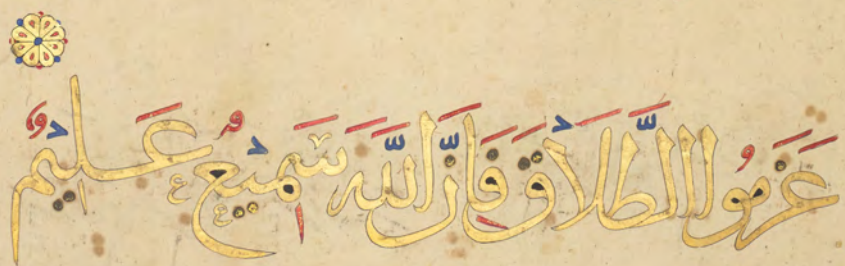 عَزَمُوا الطَّلَاقَ فَإِنَّ اللَّهَ سَمِيعٌ عَلِيمٌ